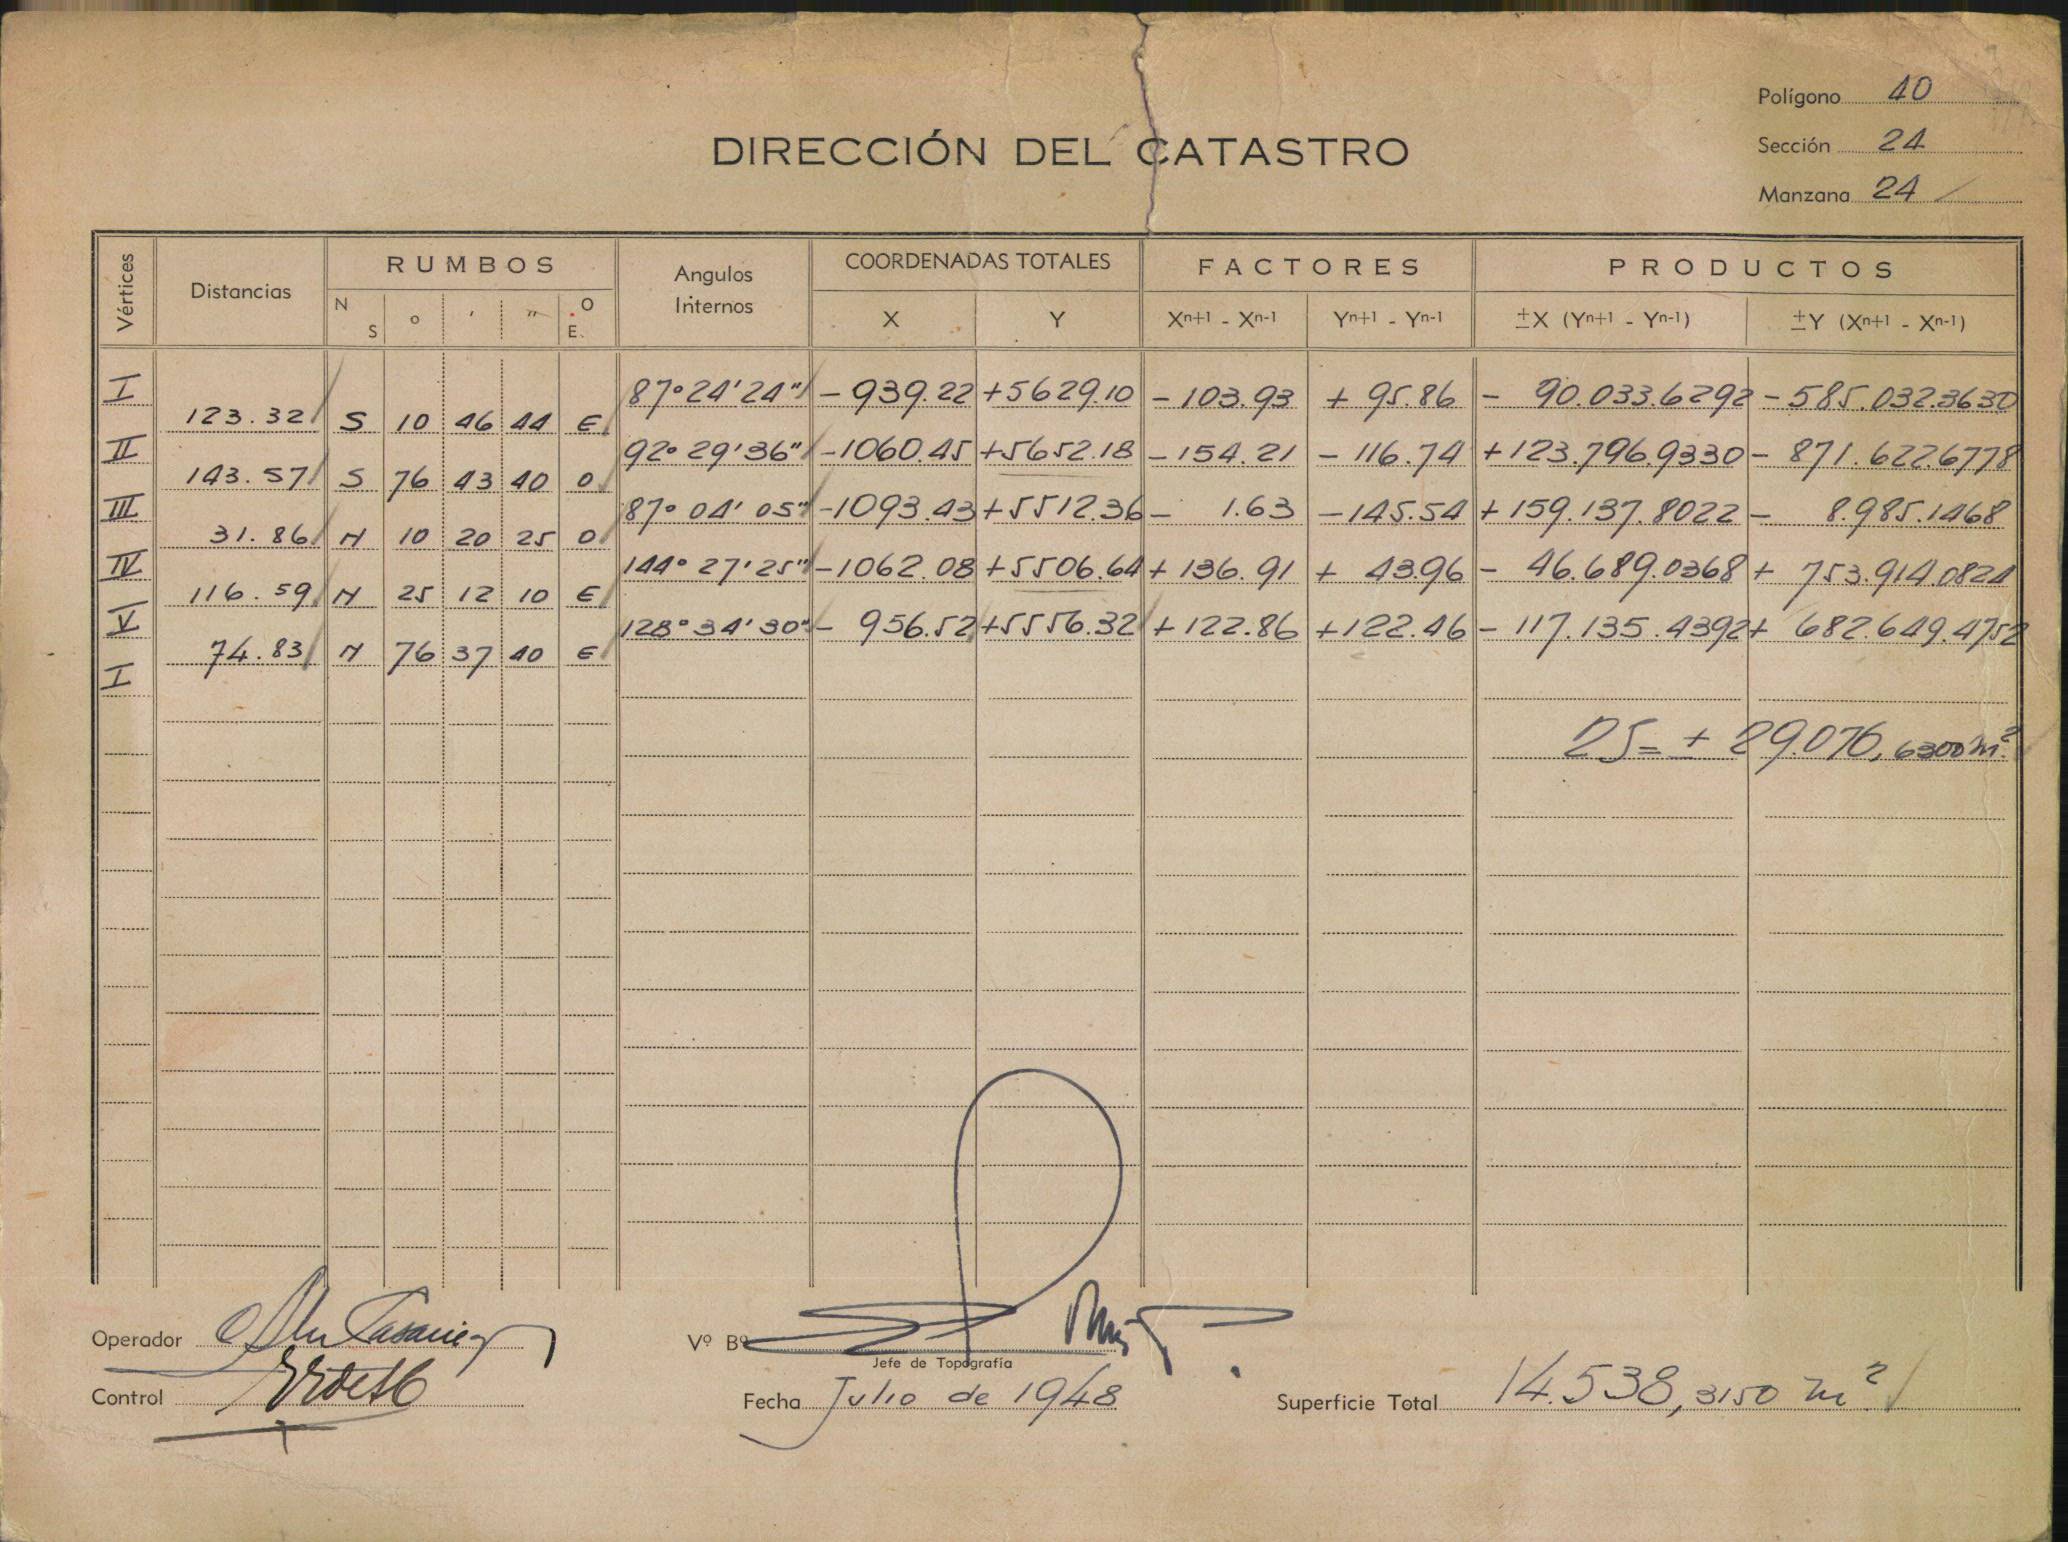 Polígono 40
DIRECCIÓN DEL CATASTRO
Sección 24
Manzana 24
Vértices Distancias RUMBOS Angulos Internos COORDENADAS TOTALES FACTORES PRODUCTOS
N S ° ' " O E. X Y Xn+1 - Xn-1 Yn+1 - Yn-1 ±X (Yn+1 - Yn-1) ±Y (Xn+1 - Xn-1)
I 87°24'24" -939.22 +5629.10 -103.93 +95.86 -90.033.6292 -585.032.3630
123.32 S 10 46 44 E
II 92°29'36" -1060.45 +5652.18 -154.21 -116.74 +123.796.9330 -871.622.6778
143.57 S 76 43 40 O
III 87°04'05" -1093.43 +5512.36 -1.63 -145.54 +159.137.8022 -8.985.1468
31.86 N 10 20 25 O
IV 144°27'25" -1062.08 +5506.64 +136.91 +43.96 -46.689.0368 +753.914.0824
116.59 N 25 12 10 E
V 128°34'30" -956.52 +5556.32 +122.86 +122.46 -117.135.4392 +682.649.4752
74.83 N 76 37 40 E
I
2S= ± 29.076,6300 m²
Operador
Vº Bº
Jefe de Topografía
Control
Fecha Julio de 1948
Superficie Total 14.538,3150 m²